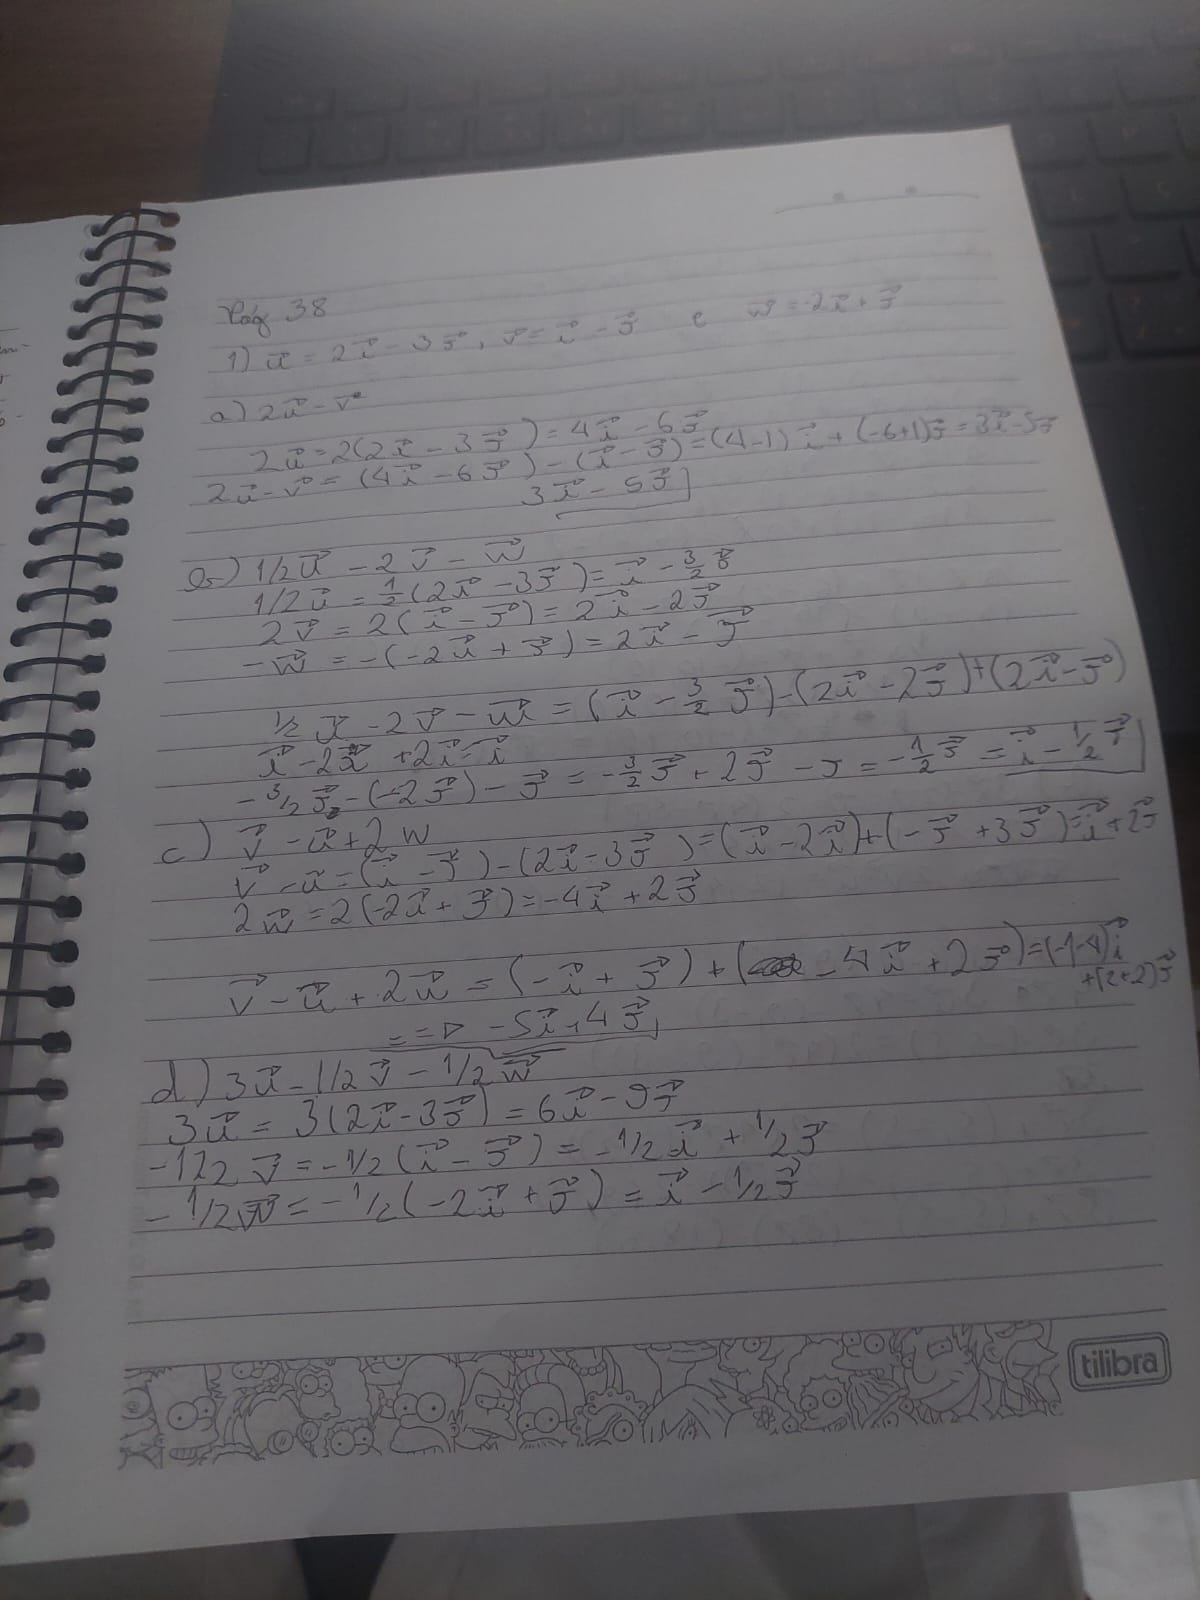 Pág 38
1) u⃗ = 2i⃗ - 3j⃗, v⃗ = i⃗ - j⃗ e w⃗ = -2i⃗ + j⃗
a) 2u⃗ - v⃗
2u⃗ = 2(2i⃗ - 3j⃗) = 4i⃗ - 6j⃗
2u⃗ - v⃗ = (4i⃗ - 6j⃗) - (i⃗ - j⃗) = (4-1)i⃗ + (-6+1)j⃗ = 3i⃗ - 5j⃗
3i⃗ - 5j⃗
b) 1/2u⃗ - 2v⃗ - w⃗
1/2u⃗ = 1/2(2i⃗ - 3j⃗) = i⃗ - 3/2j⃗
2v⃗ = 2(i⃗ - j⃗) = 2i⃗ - 2j⃗
-w⃗ = -(-2i⃗ + j⃗) = 2i⃗ - j⃗
1/2u⃗ - 2v⃗ - w⃗ = (i⃗ - 3/2j⃗) - (2i⃗ - 2j⃗) + (2i⃗ - j⃗)
i⃗ - 2i⃗ + 2i⃗ = i⃗
-3/2j⃗ - (-2j⃗) - j⃗ = -3/2j⃗ + 2j⃗ - j = -1/2j⃗ = i⃗ - 1/2j⃗
c) v⃗ - u⃗ + 2w
v⃗ - u⃗ = (i⃗ - j⃗) - (2i⃗ - 3j⃗) = (i⃗ - 2i⃗) + (-j⃗ + 3j⃗) = i⃗ + 2j⃗
2w⃗ = 2(-2i⃗ + j⃗) = -4i⃗ + 2j⃗
v⃗ - u⃗ + 2u⃗ = (-i⃗ + j⃗) + (-4i⃗ + 2j⃗) = (-1-4)i⃗
+(2+2)j⃗
= => -5i⃗ + 4j⃗
d) 3u⃗ - 1/2v⃗ - 1/2w⃗
3u⃗ = 3(2i⃗ - 3j⃗) = 6i⃗ - 9j⃗
-1/2v⃗ = -1/2(i⃗ - j⃗) = -1/2i⃗ + 1/2j⃗
-1/2w⃗ = -1/2(-2i⃗ + j⃗) = i⃗ - 1/2j⃗
tilibra